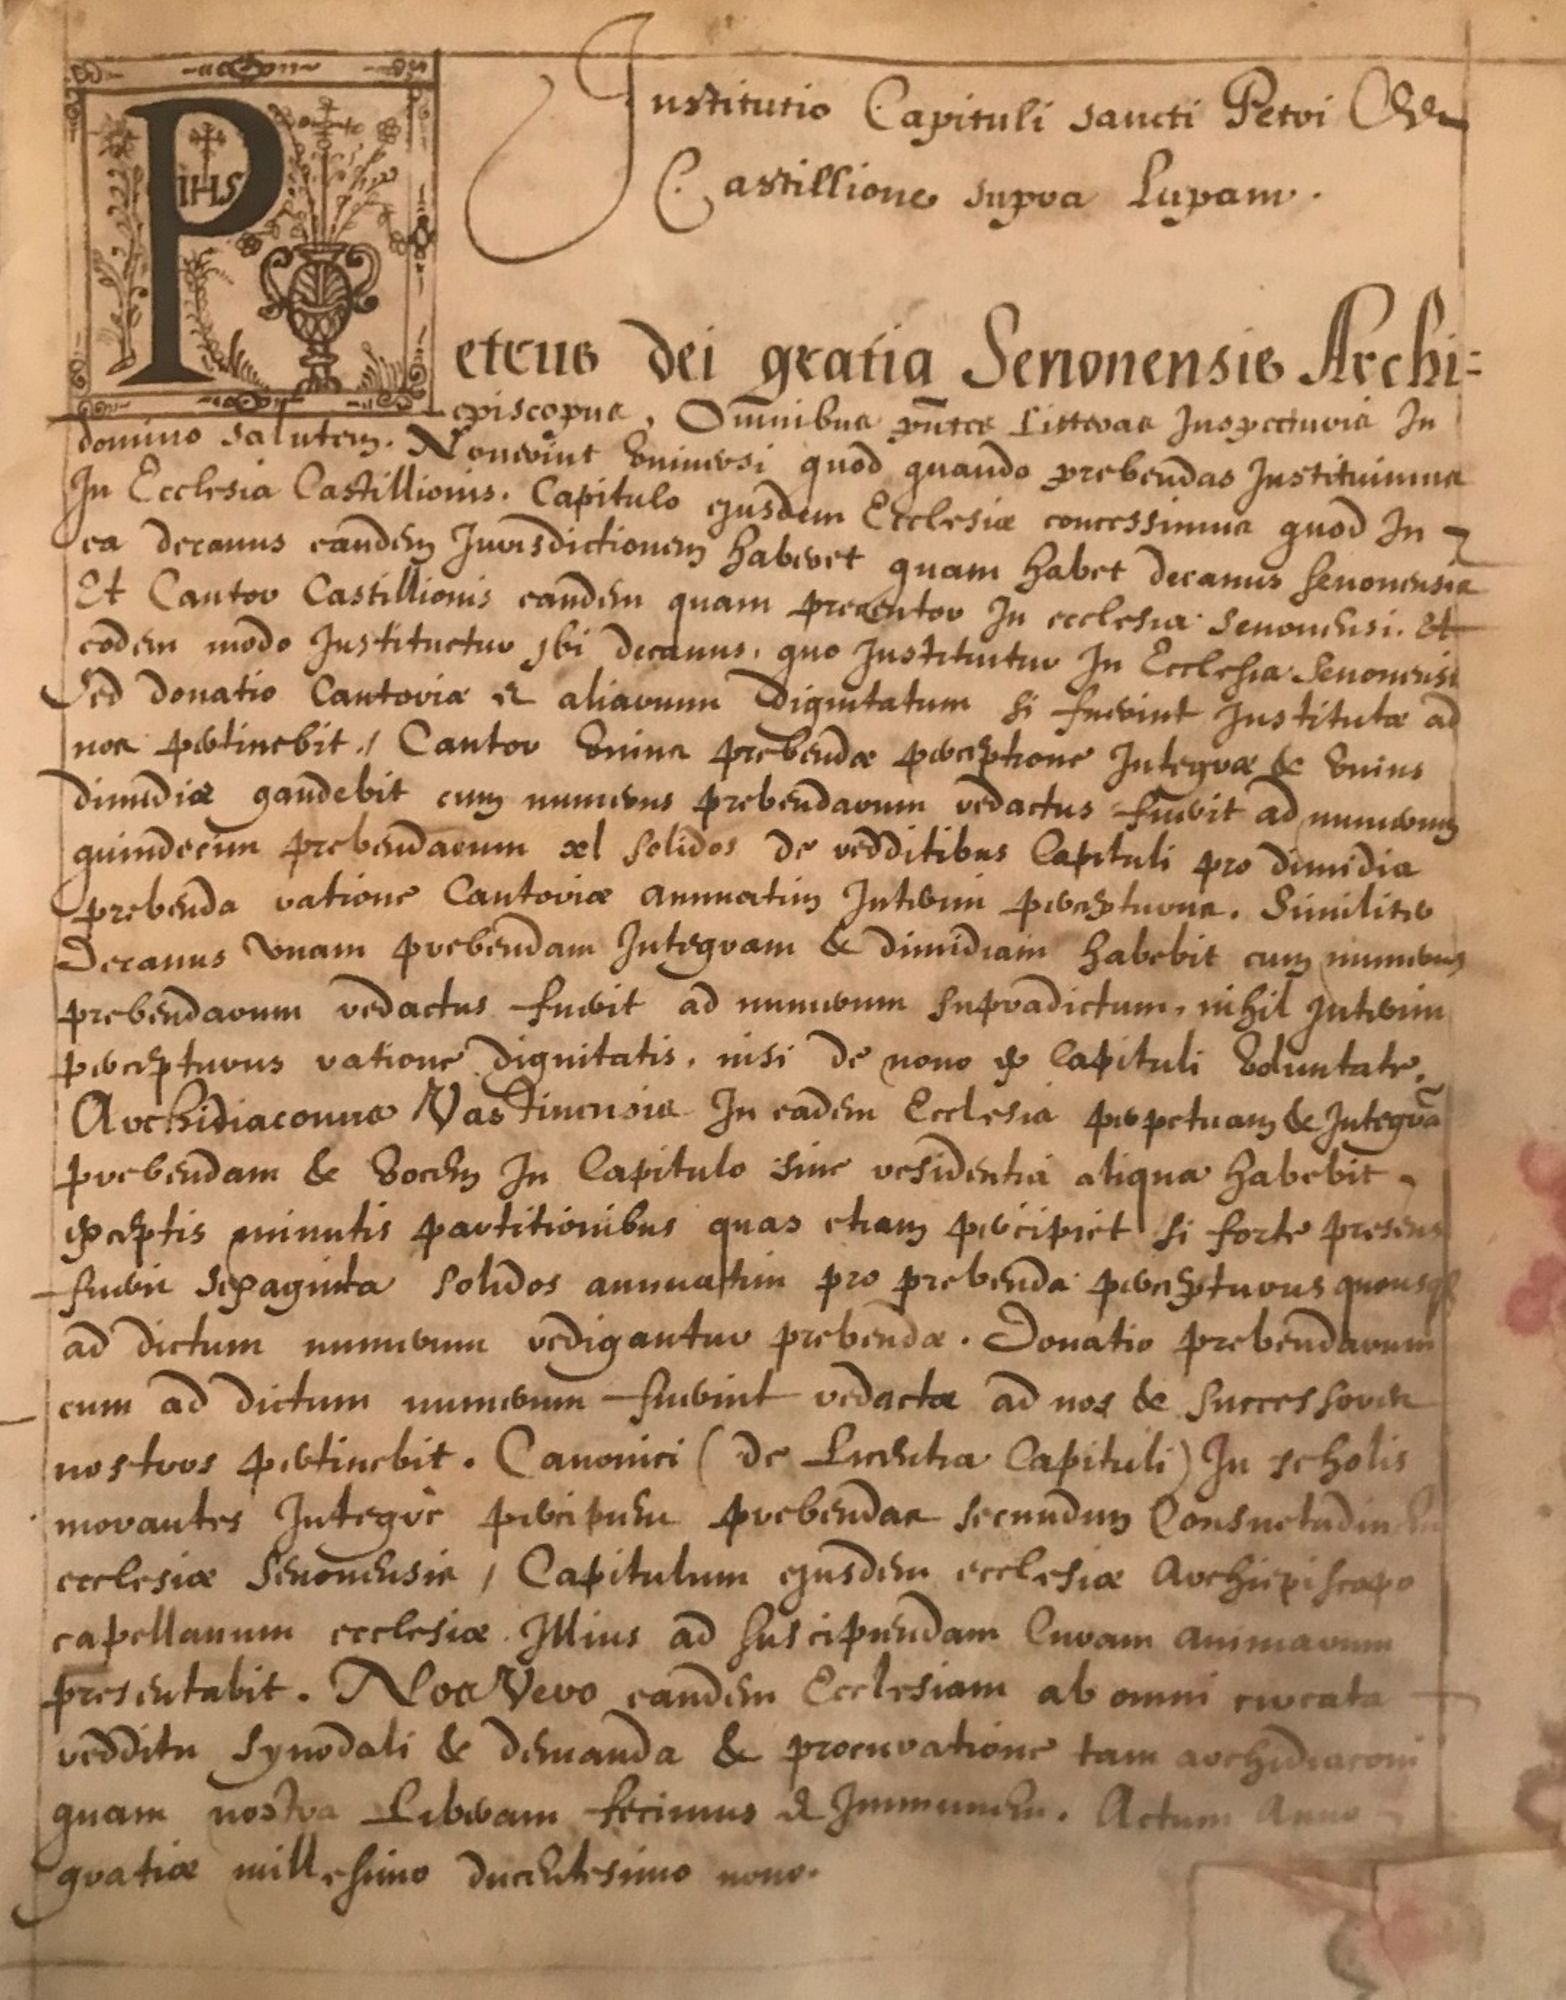 Institutio Capituli sancti Petri De
Castillione supra Lupam.
IHS
Petrus dei gratia Senonensis Archi=
episcopus, Omnibus pñtes Litteras Inspecturis In
domino salutem. Noverint Universi quod quando prebendas Instituimus
In Ecclesia Castillionis. Capitulo ejusdem Ecclesiæ concessimus quod In
ea decanus eandem Jurisdictionem haberet quam habet decanus senonensis
Et Cantor Castillionis eandem quam precentor In ecclesia Senonensi. Et
eodem modo Instituetur Ibi decanus, quo Instituitur In Ecclesia Senonensi
Sed donatio Cantoriæ & aliarum Dignitatum si fuerint Institutæ ad
nos pertinebit, Cantor Unius prebendæ perceptione Integræ & Unius
dimidiæ gaudebit cum numerus prebendarum redactus fuerit ad numerum
quindecim prebendarum xl solidos de redditibus Capituli pro dimidia
prebenda ratione Cantoriæ annuatim Interim percepturus. Similiter
Decanus Vnam prebendam Integram & dimidiam habebit cum numerus
prebendarum redactus fuerit ad numerum supradictum, nihil Interim
percepturus ratione dignitatis, nisi de nono ex Capituli Voluntate.
Archidiaconus Vastinensis In eadem Ecclesia perpetuam & Integrã
prebendam & Vocem In Capitulo sine residentia aliqua habebit
exceptis minutis partitionibus quas etiam percipiet si forte presens
fuerit sexaginta solidos annuatim pro prebenda percepturus quousq
ad dictum numerum redigantur prebendæ. Donatio prebendarum
cum ad dictum numerum fuerint redactæ ad nos & successores
nostros pertinebit. Canonici (de Licentia Capituli) In scholis
morantes Integrè percipient prebendas secundum Consuetudinem
ecclesiæ Senonensis, Capitulum ejusdem ecclesiæ Archiepiscopo
capellanum ecclesiæ Illius ad suscipiendam Curam animarum
presentabit. Nos Vero eandem Ecclesiam ab omni circata
redditu synodali & demanda & procuratione tam archidiaconi
quam nostra Liberam fecimus & Immunem. Actum Anno
gratiæ millesimo ducentesimo nono.